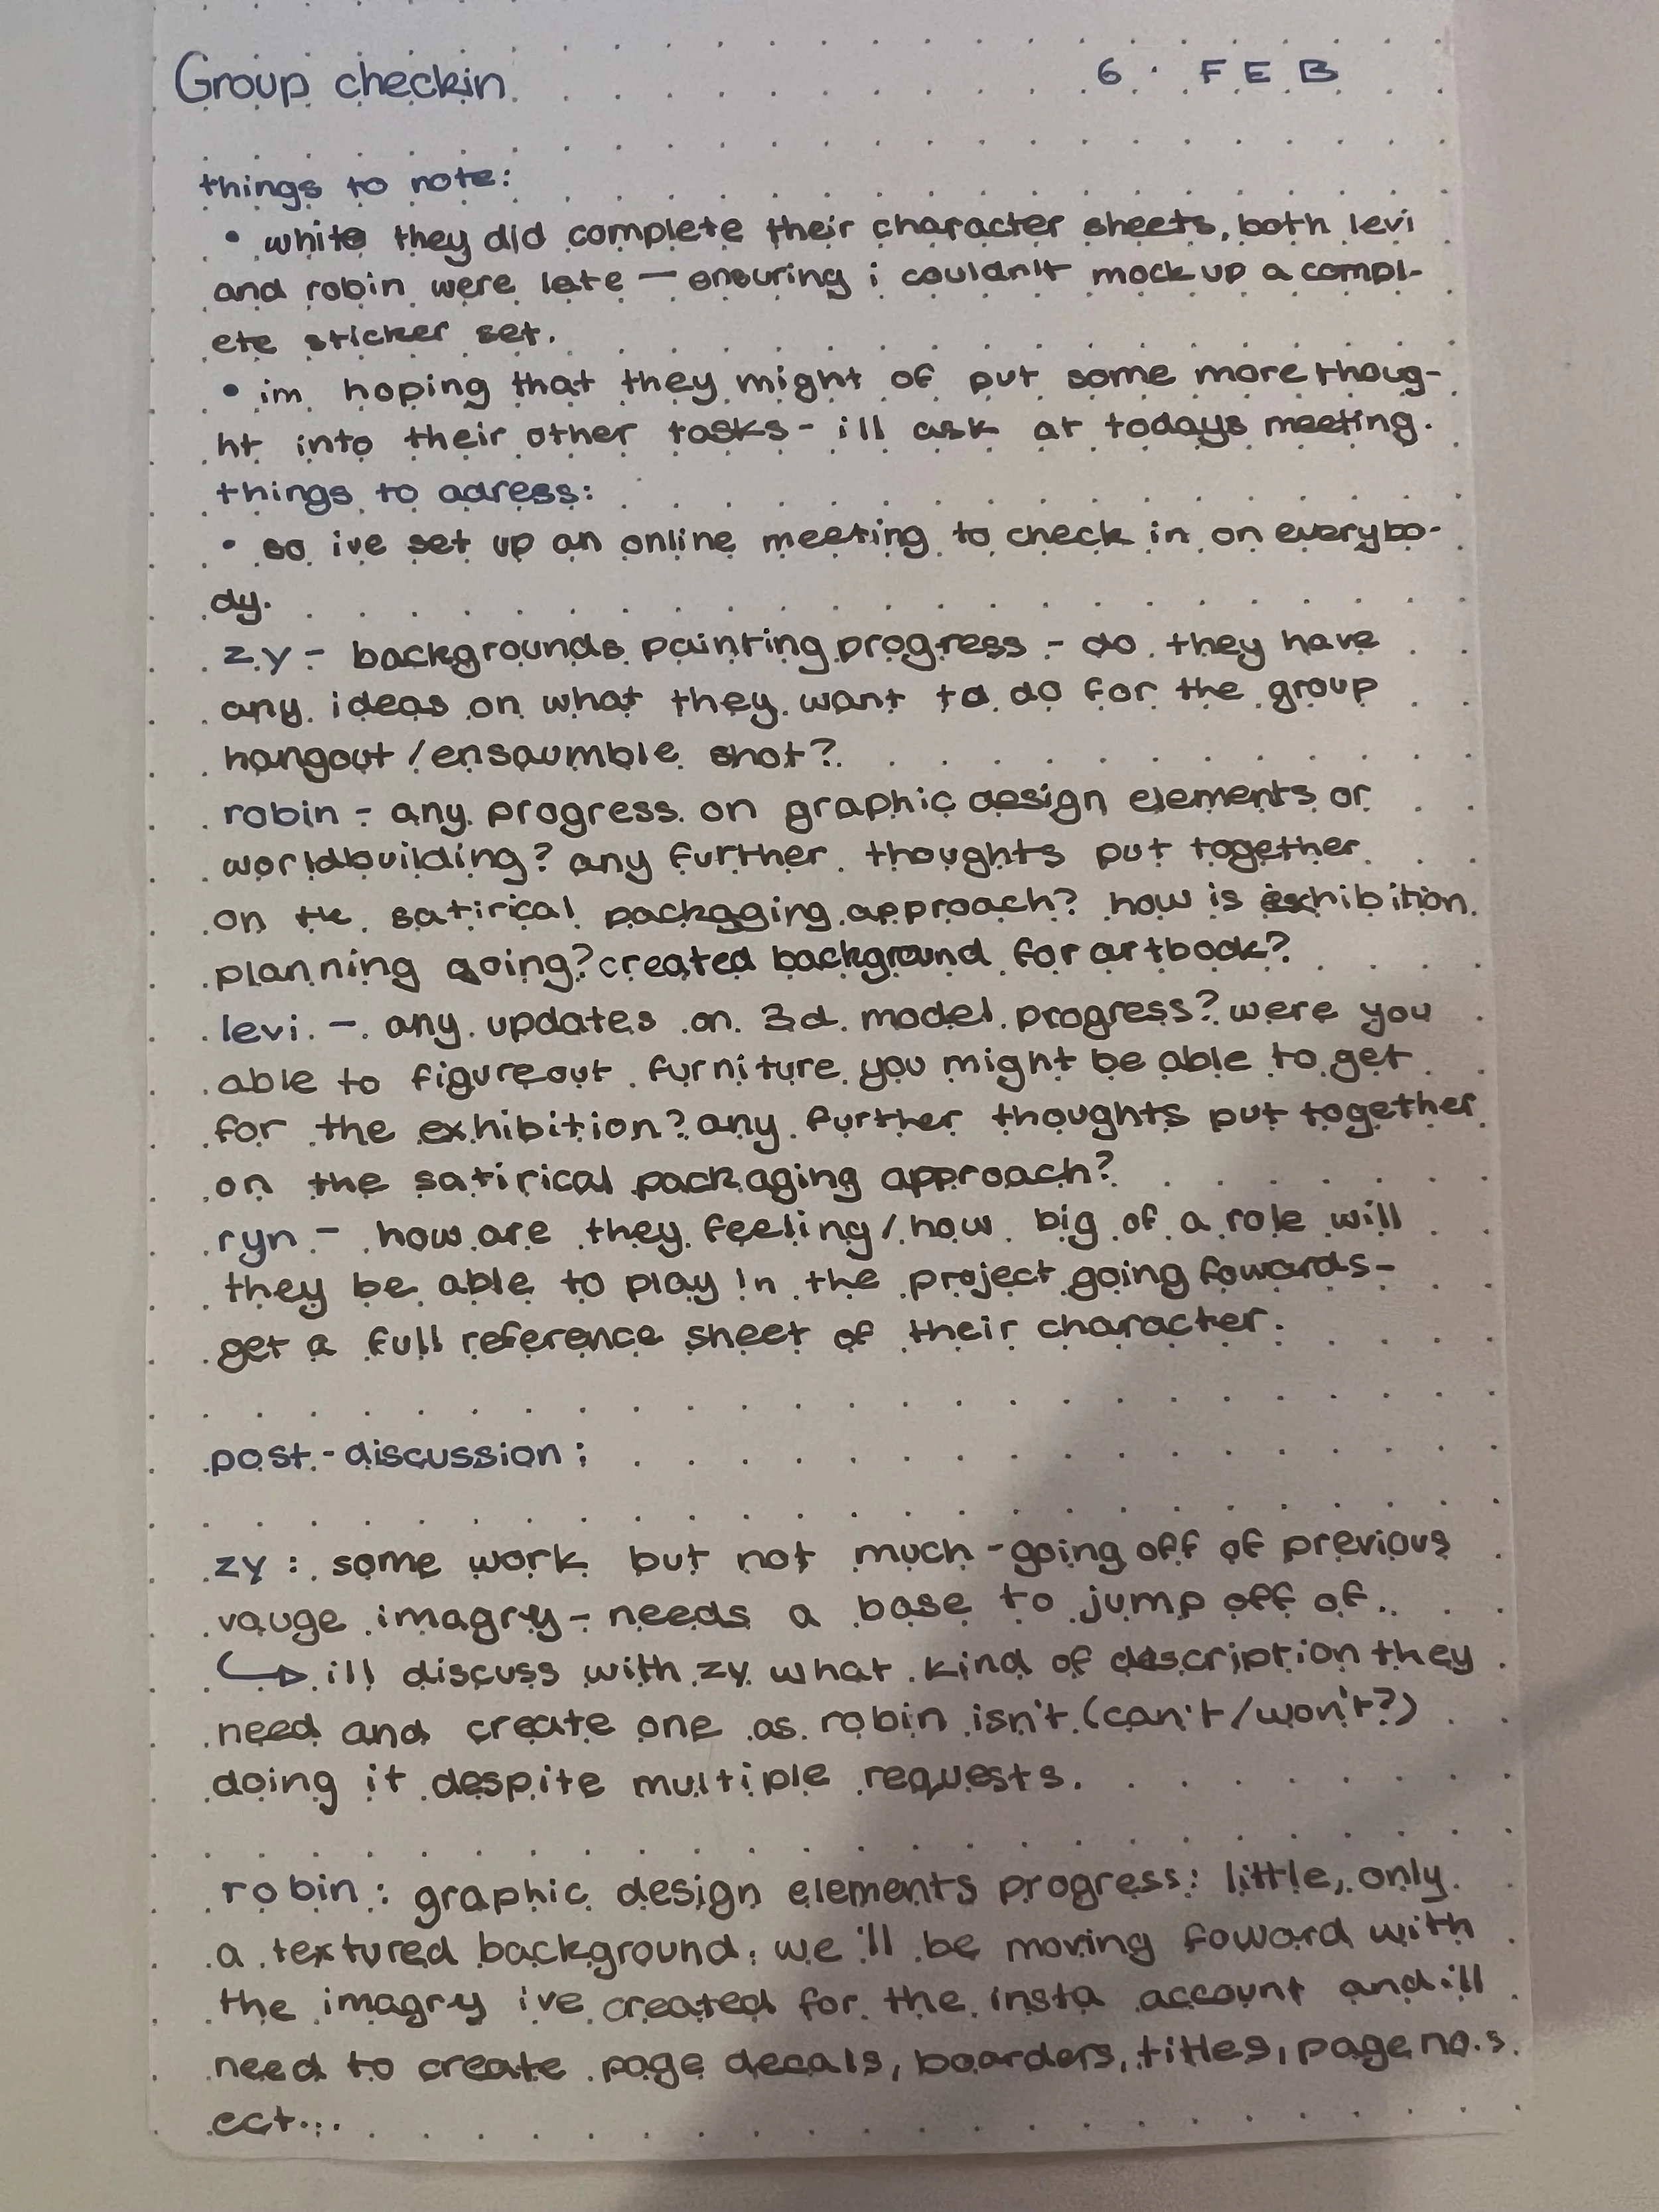 Group checkin 6. FEB
things to note:
• while they did complete their character sheets, both levi
and robin were late — ensuring i couldn't mock up a compl-
ete sticker set.
• im hoping that they might of put some more thoug-
ht into their other tasks - ill ask at todays meeting.
things to adress:
• so ive set up an online meeting to check in on everybo-
dy.
zy - backgrounds painting progress - do they have
any ideas on what they want to do for the group
hangout/ensaumble shot?
robin - any progress on graphic design elements or
worldbuilding? any further thoughts put together
on the satirical packaging approach? how is exhibition
planning going? created background for artbook?
levi - any updates on 3d model progress? were you
able to figureout furniture you might be able to get
for the exhibition? any further thoughts put together
on the satirical packaging approach?
ryn - how are they feeling/how big of a role will
they be able to play in the project going fowards -
get a full reference sheet of their character.
post-discussion:
zy: some work but not much - going off of previous
vauge imagry - needs a base to jump off of.
↪ ill discuss with zy what kind of description they
need and create one as robin isn't (can't/won't?)
doing it despite multiple requests.
robin: graphic design elements progress: little, only
a textured background. we'll be moving foward with
the imagry ive created for the insta account and ill
need to create page decals, boarders, titles, page no.s
ect...